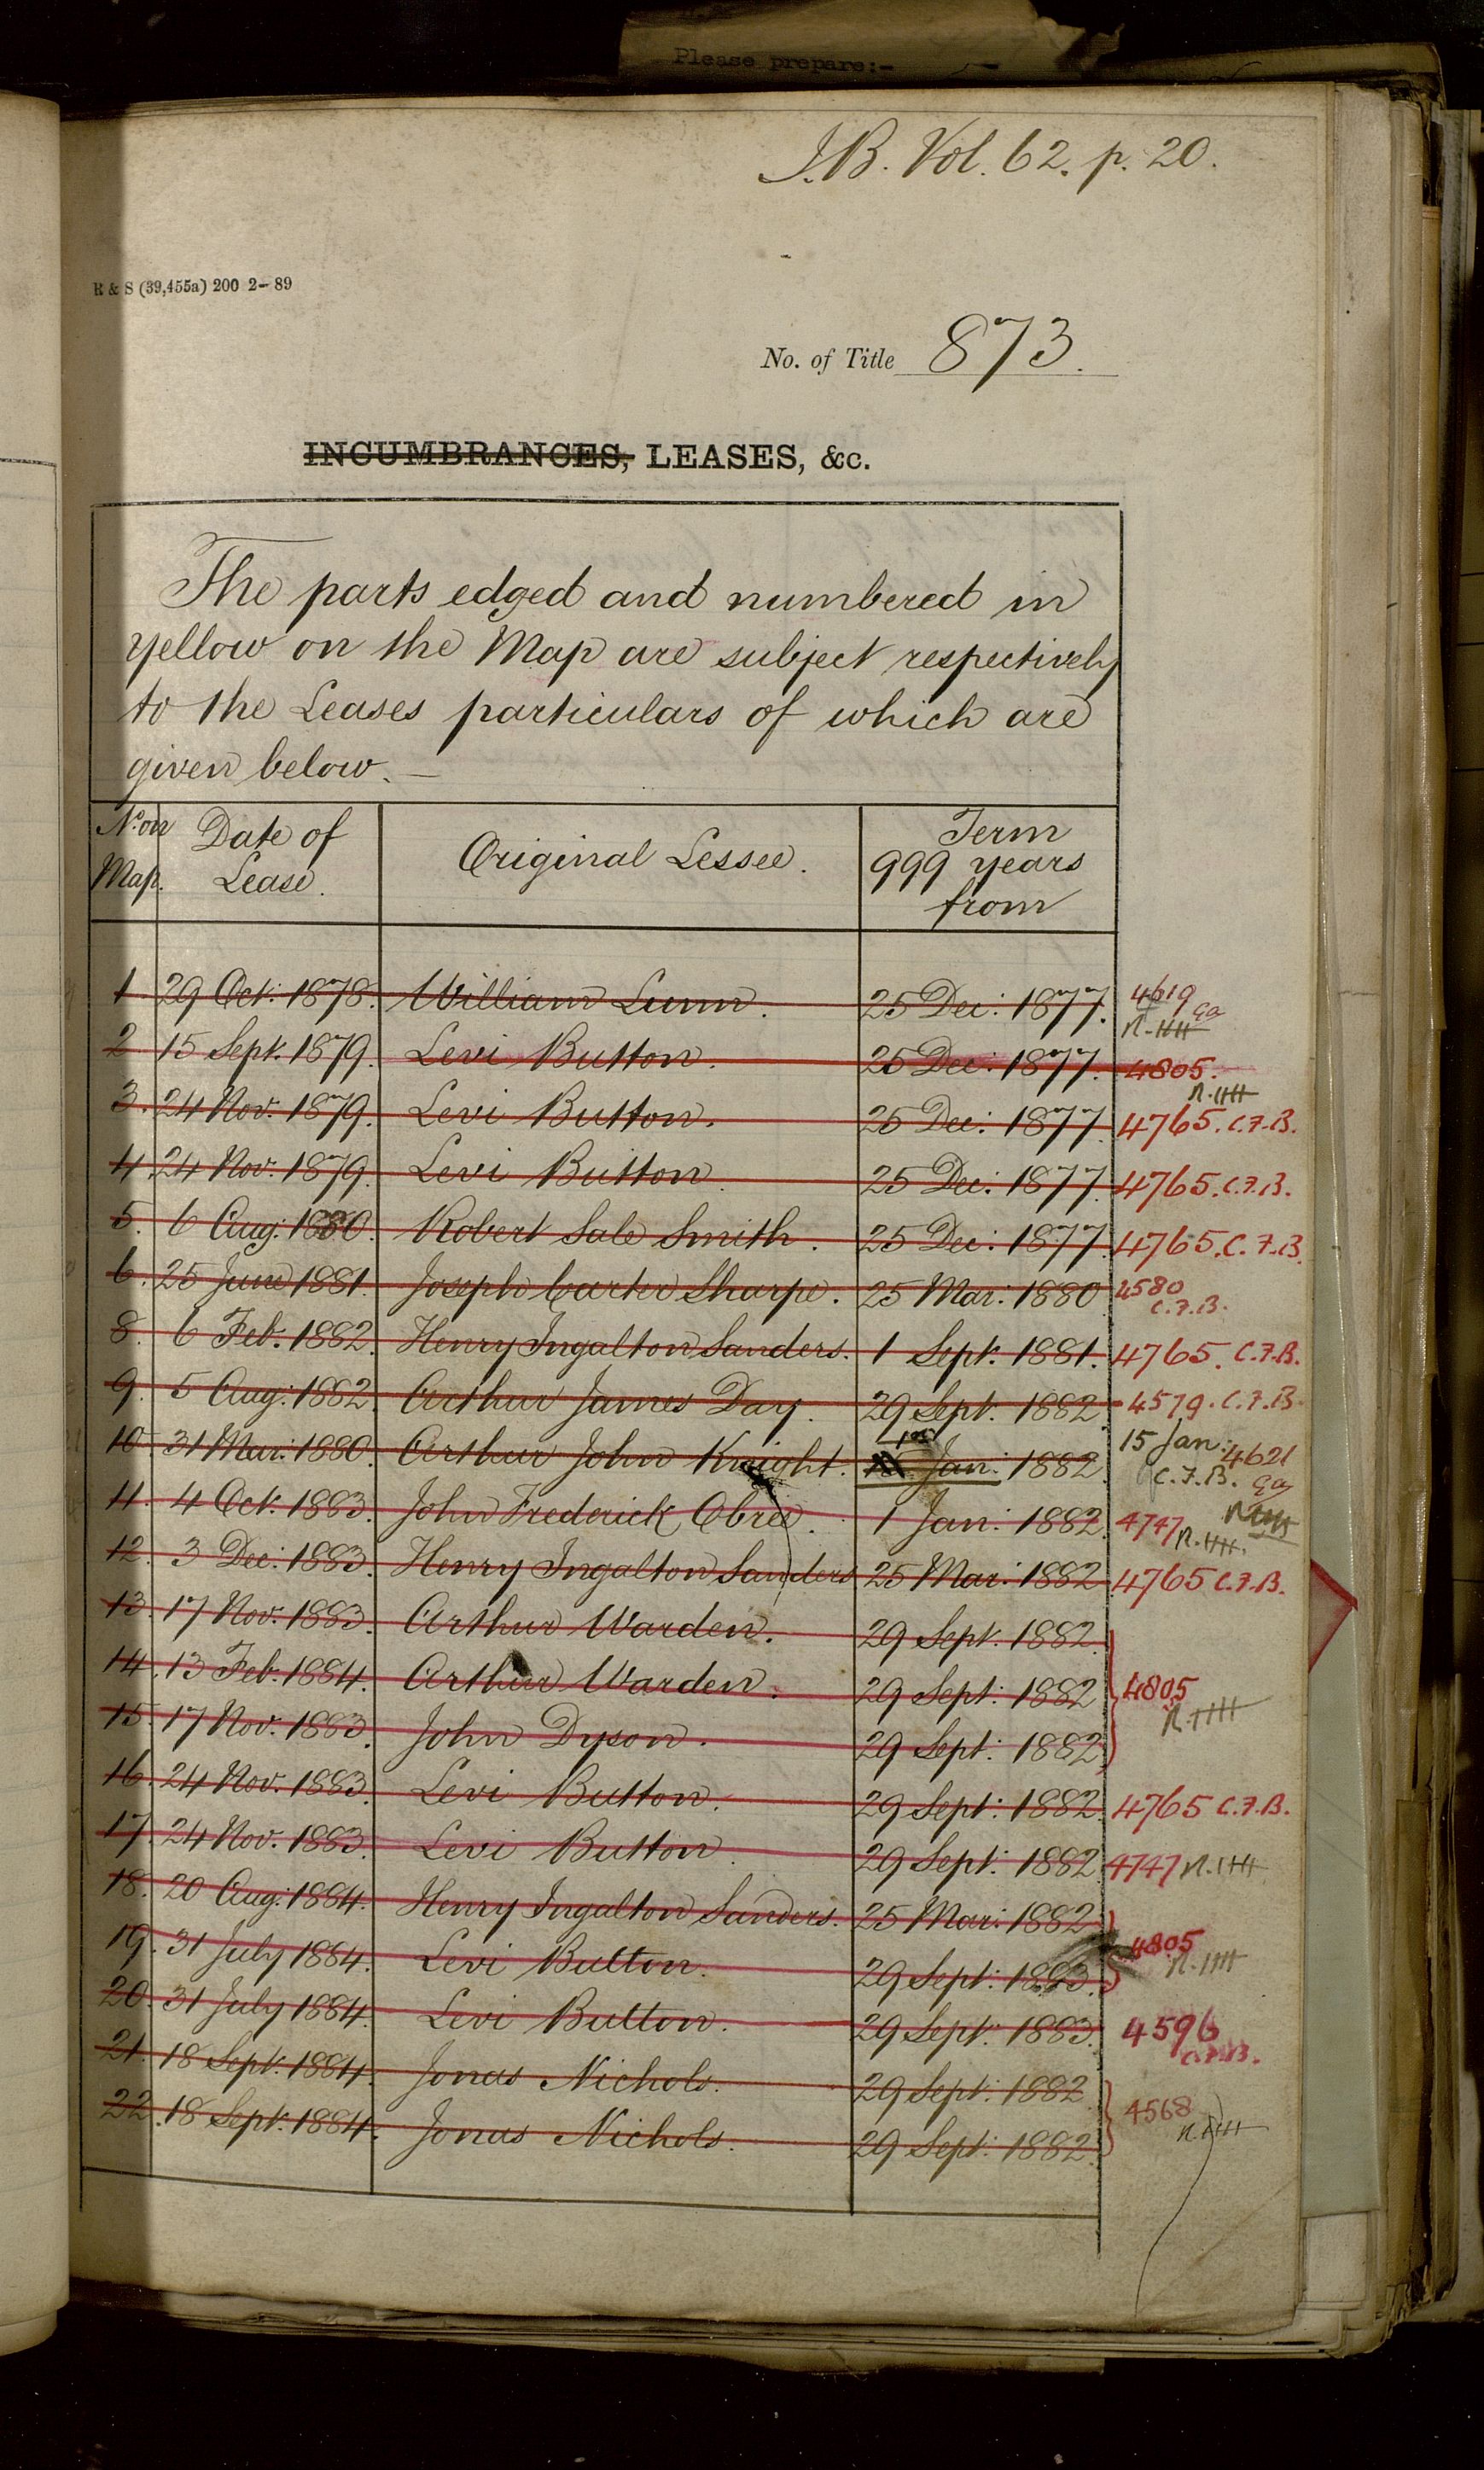 Please prepare:-
I.B. Vol. 62. p. 20.
R & S (39,455a) 200 2-89
No. of Title 873.
INCUMBRANCES, LEASES, &c.
The parts edged and numbered in
yellow on the Map are subject respectively
to the Leases particulars of which are
given below. —
No. on Map. Date of Lease. Original Lessee. Term 999 years from
1. 29 Oct: 1878. William Lunn. 25 Dec: 1877. 4619
2 15 Sept. 1879. Levi Button. 25 Dec: 1877. 4805.
3. 24 Nov. 1879. Levi Button. 25 Dec: 1877. 4765. C.F.B.
4 24 Nov. 1879. Levi Button. 25 Dec: 1877. 4765. C.F.B.
5. 6 Aug: 1880. Robert Sale Smith. 25 Dec: 1877. 4765. C.F.B.
6. 25 June 1881. Joseph Carter Sharpe. 25 Mar: 1880 4580 C.F.B.
8. 6 Feb. 1882. Henry Ingalton Sanders. 1 Sept. 1881. 4765. C.F.B.
9. 5 Aug: 1882. Arthur James Day. 29 Sept. 1882 4579. C.F.B.
10. 31 Mar: 1880. Arthur John Knight. Jan: 1882. 15 Jan: 4621 C.F.B.
11. 4 Oct. 1883. John Frederick Obree. 1 Jan: 1882. 4747
12. 3 Dec: 1883. Henry Ingalton Sanders 25 Mar: 1882 4765 C.F.B.
13. 17 Nov. 1883. Arthur Warden. 29 Sept. 1882.
14. 13 Feb. 1884. Arthur Warden. 29 Sept: 1882 4805
15. 17 Nov. 1883. John Dyson. 29 Sept: 1882
16. 24 Nov. 1883. Levi Button. 29 Sept: 1882. 4765 C.F.B.
17. 24 Nov. 1883. Levi Button. 29 Sept: 1882 4747
18. 20 Aug: 1884. Henry Ingalton Sanders. 25 Mar: 1882
19. 31 July 1884. Levi Button. 29 Sept: 1883. 4805
20. 31 July 1884. Levi Button. 29 Sept: 1883. 4596 C.F.B.
21. 18 Sept. 1884. Jonas Nichols. 29 Sept: 1882
22. 18 Sept. 1884. Jonas Nichols. 29 Sept: 1882 4568